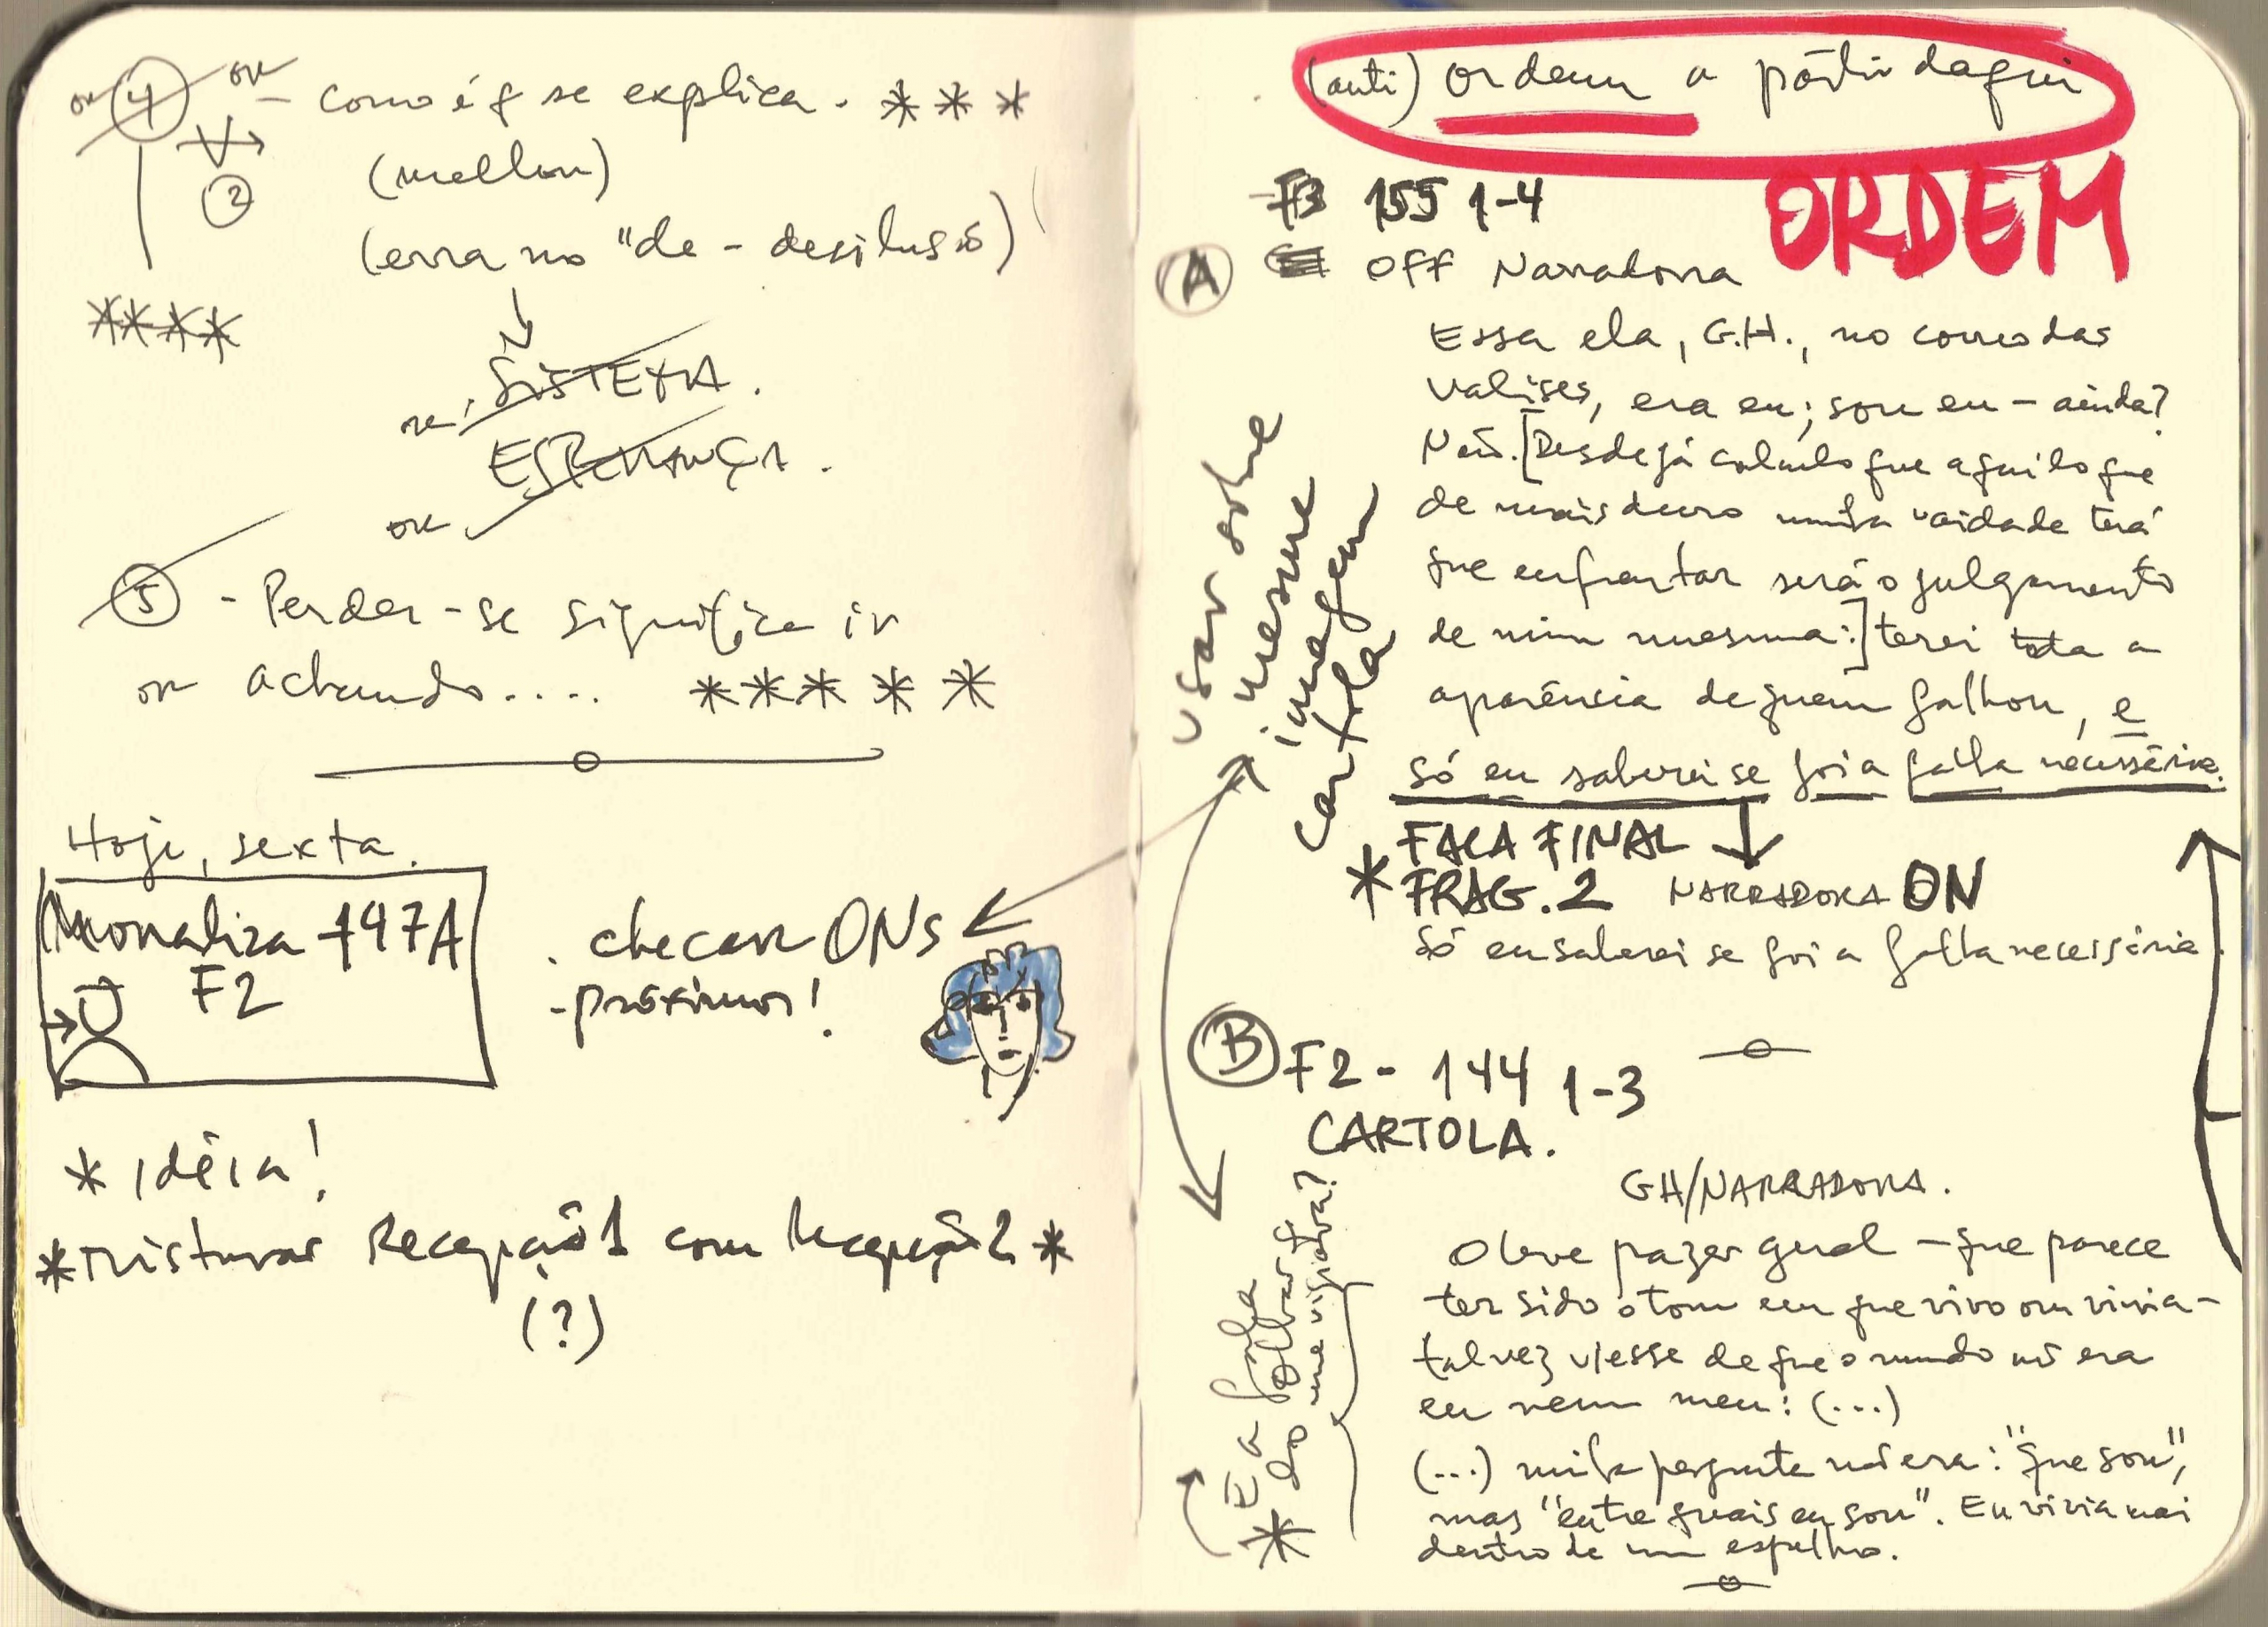 ou 4 ou - como é q se explica. * * *
V
2
(melhor)
(erra no "de - desilusão)
****
SISTEMA.
ou
ESPERANÇA.
ou
5 - Perder-se significa ir
ou achando..... * * * * *
Hoje, sexta.
Monaliza 147A
F2
. checar ONs
- próximos!
* idéia!
* misturar Recepção 1 com Recepção 2 *
(?)
(anti) ordem a partir daqui
ORDEM
F3 155 1-4
A OFF Narradora
Essa ela, G.H., no couro das
valises, era eu; sou eu - ainda?
Não. [Desde já calculo que aquilo que
de mais duro minha vaidade terá
que enfrentar será o julgamento
de mim mesma:] terei toda a
aparência de quem falhou, e
só eu saberei se foi a falha necessária.
FALA FINAL
* FRAG. 2 NARRADORA ON
Só eu saberei se foi a falha necessária.
usar sobre
mesma
imagem
cartola
B F2 - 144 1-3
CARTOLA.
GH/NARRADORA.
O leve prazer geral - que parece
ter sido o tom em que vivo ou vivia -
talvez viesse de que o mundo não era
eu nem meu: (...)
(...) minha pergunta não era: "que sou",
mas "entre quais eu sou". Eu vivia mais
dentro de um espelho.
* É a fala
do olhar q
me vigiava?